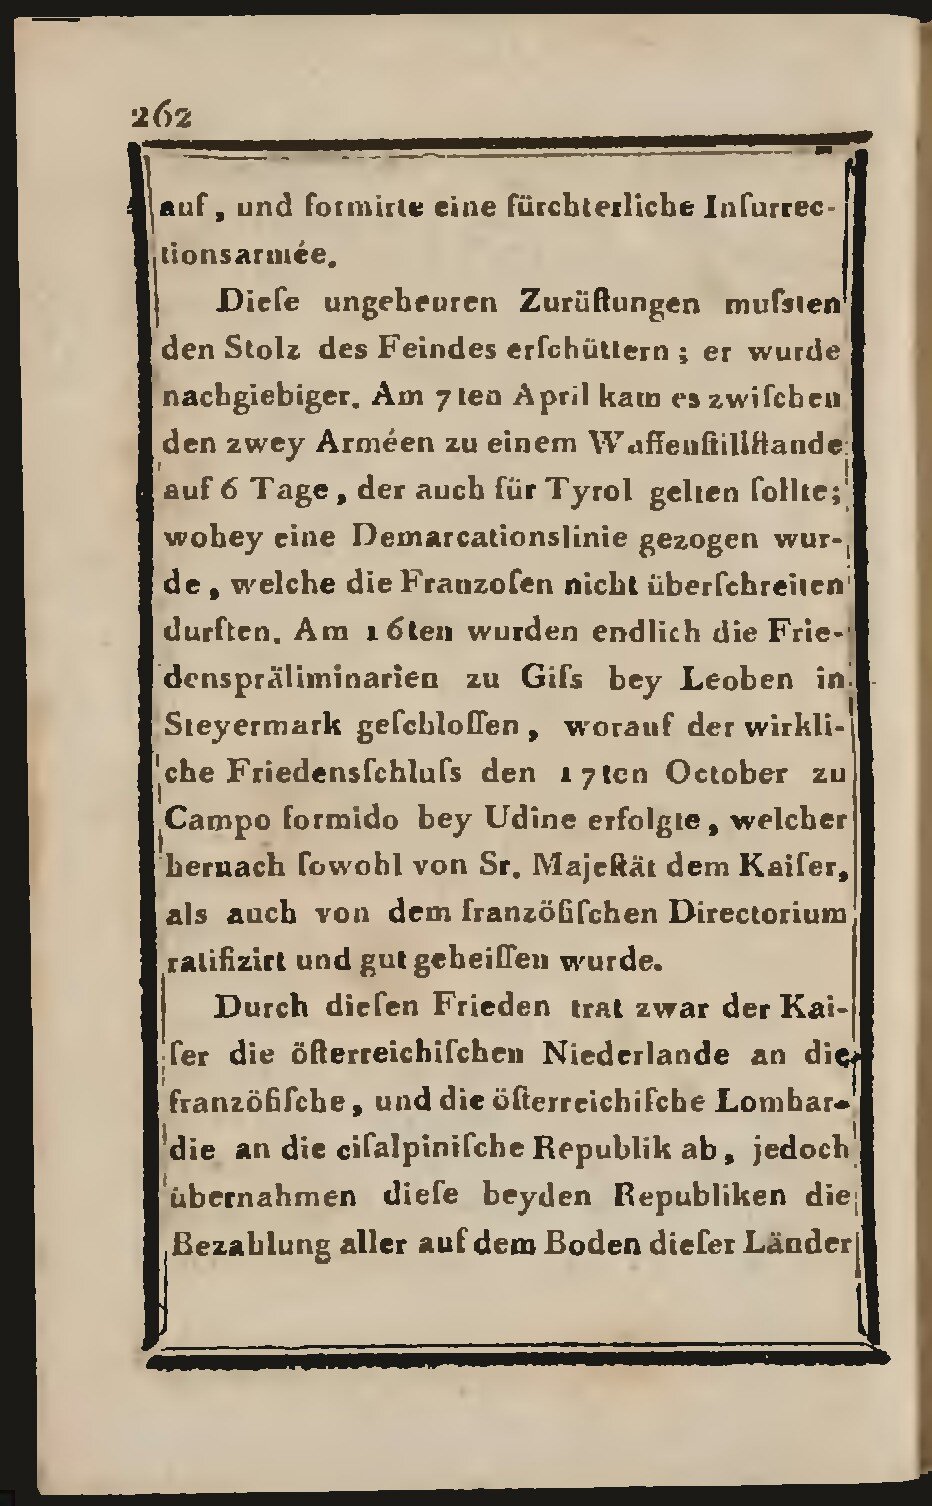 262
auf, und formirte eine fürchterliche Inſurrec-
tionsarmée.
Dieſe ungeheuren Zurüſtungen muſsten
den Stolz des Feindes erſchüttern; er wurde
nachgiebiger. Am 7ten April kam es zwiſchen
den zwey Arméen zu einem Waffenſtillſtande
auf 6 Tage, der auch für Tyrol gelten ſollte;
wobey eine Demarcationslinie gezogen wur-
de, welche die Franzoſen nicht überſchreiten
durften. Am 16ten wurden endlich die Frie-
denspräliminarien zu Giſs bey Leoben in
Steyermark geſchloſſen, worauf der wirkli-
che Friedensſchluſs den 17ten October zu
Campo formido bey Udine erfolgte, welcher
hernach ſowohl von Sr. Majeſtät dem Kaiſer,
als auch von dem franzöſiſchen Directorium
ratifizirt und gut geheiſſen wurde.
Durch dieſen Frieden trat zwar der Kai-
ſer die öſterreichiſchen Niederlande an die
franzöſiſche, und die öſterreichiſche Lombar-
die an die ciſalpiniſche Republik ab, jedoch
übernahmen dieſe beyden Republiken die
Bezahlung aller auf dem Boden dieſer Länder